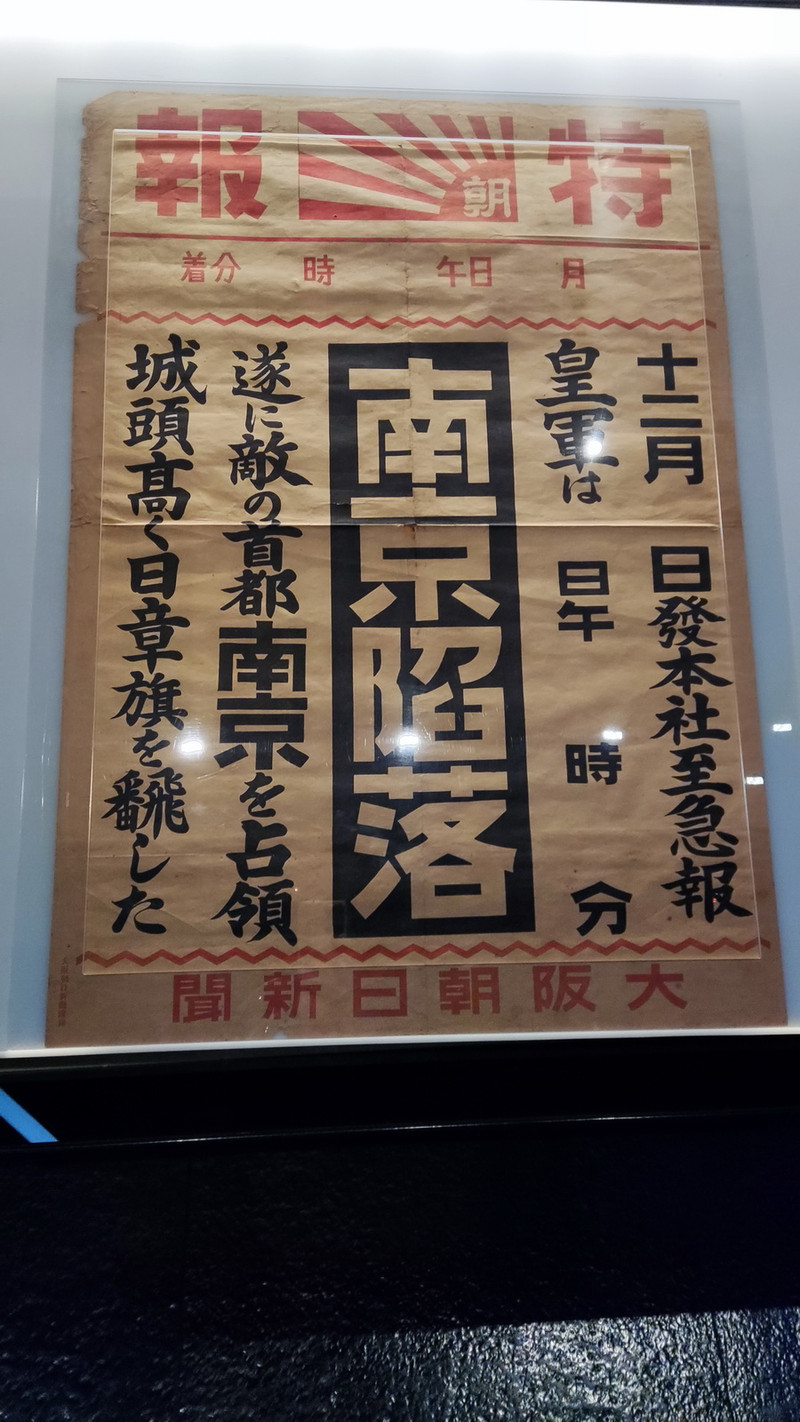 特 朝 報
月 日午 時 分着
十二月 日發本社至急報
皇軍は 日午 時 分
南京陷落
遂に敵の首都南京を占領
城頭髙く日章旗を飜した
大阪朝日新聞